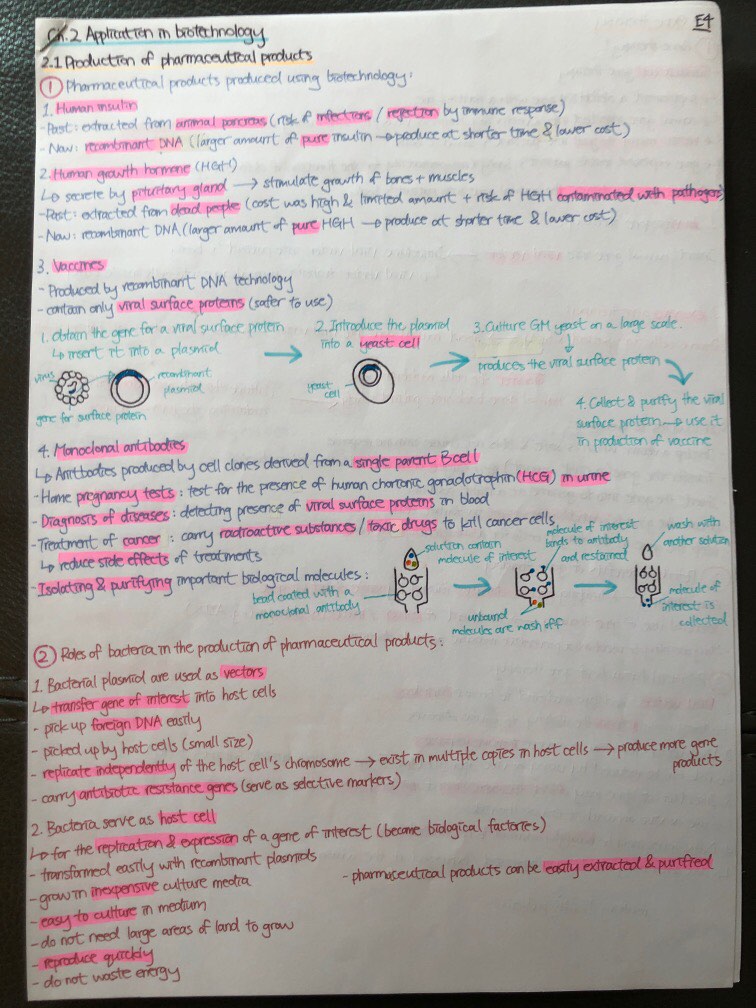 E4
Ch.2 Application in biotechnology
2.1 Production of pharmaceutical products
① Pharmaceutical products produced using biotechnology:
1. Human insulin
- Past: extracted from animal pancreas (risk of infections / rejection by immune response)
- Now: recombinant DNA (larger amount of pure insulin → produce at shorter time & lower cost)
2. Human growth hormone (HGH)
↳ secrete by pituitary gland → stimulate growth of bones + muscles
- Past: extracted from dead people (cost was high & limited amount + risk of HGH contaminated with pathogens)
- Now: recombinant DNA (larger amount of pure HGH → produce at shorter time & lower cost)
3. Vaccines
- Produced by recombinant DNA technology
- contain only viral surface proteins (safer to use)
1. obtain the gene for a viral surface protein
↳ insert it into a plasmid
virus
recombinant
plasmid
gene for surface protein
2. Introduce the plasmid
into a yeast cell
yeast
cell
3. Culture GM yeast on a large scale.
↓
produces the viral surface protein
4. Collect & purify the viral
surface protein → use it
in production of vaccine
4. Monoclonal antibodies
↳ Antibodies produced by cell clones derived from a single parent B cell
- Home pregnancy tests: test for the presence of human chorionic gonadotrophin (HCG) in urine
- Diagnosis of diseases: detecting presence of viral surface proteins in blood
- Treatment of cancer: carry radioactive substances / toxic drugs to kill cancer cells
↳ reduce side effects of treatments
- Isolating & purifying important biological molecules:
bead coated with a
monoclonal antibody
solution contain
molecule of interest
molecule of interest
binds to antibody
and restained
unbound
molecules are wash off
wash with
another solution
molecule of
interest is
collected
② Roles of bacteria in the production of pharmaceutical products:
1. Bacterial plasmid are used as vectors
↳ transfer gene of interest into host cells
- pick up foreign DNA easily
- picked up by host cells (small size)
- replicate independently of the host cell's chromosome → exist in multiple copies in host cells → produce more gene
products
- carry antibiotic resistance genes (serve as selective markers)
2. Bacteria serve as host cell
↳ for the replication & expression of a gene of interest (became biological factories)
- transformed easily with recombinant plasmids
- grow in inexpensive culture media
- pharmaceutical products can be easily extracted & purified
- easy to culture in medium
- do not need large areas of land to grow
- reproduce quickly
- do not waste energy